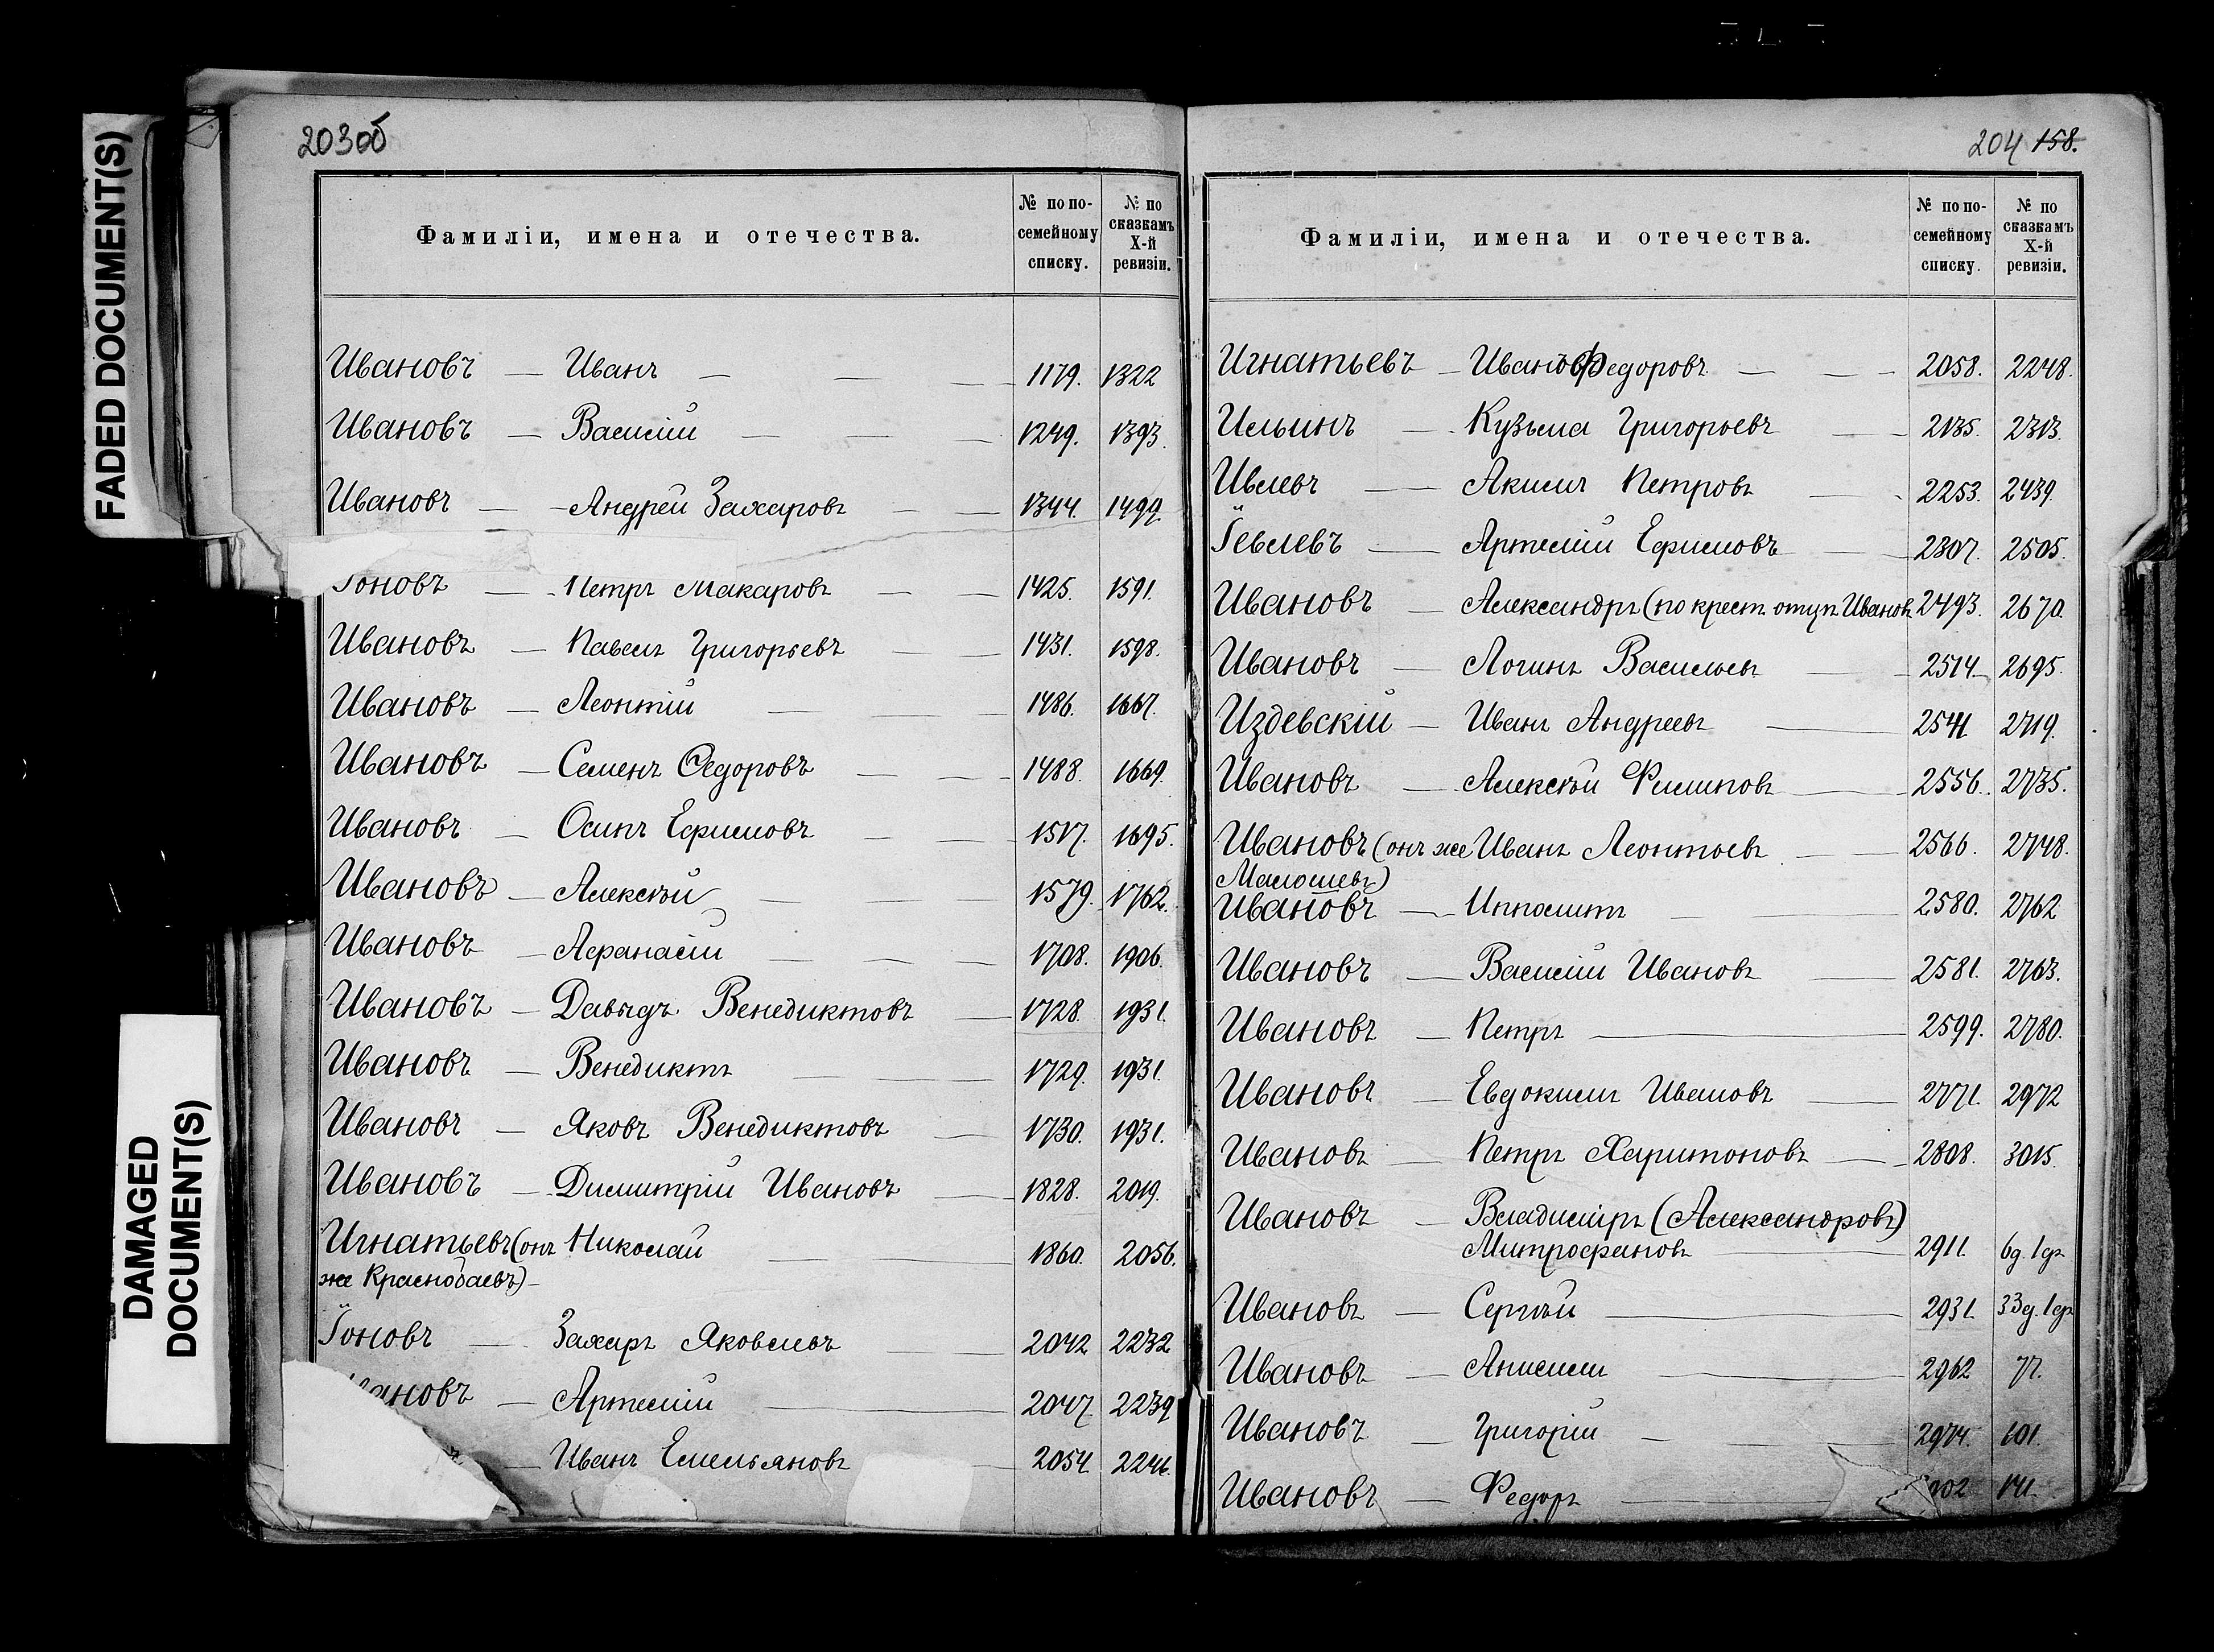 FADED DOCUMENT(S)
DAMAGED
DOCUMENT(S)
203об
Фамиліи, имена и отечества. № по по-семейному списку. № по сказкамъ X-й ревизіи.
Ивановъ — Иванъ — 1179. 1322
Ивановъ — Василій — 1249. 1393.
Ивановъ — Андрей Захаровъ — 1344. 1499.
Іоновъ — Петръ Макаровъ — 1425. 1591.
Ивановъ — Павелъ Григорьевъ — 1431. 1598.
Ивановъ — Леонтій — 1486. 1667.
Ивановъ — Семенъ Ѳедоровъ — 1488. 1669.
Ивановъ — Осипъ Ефимовъ — 1517. 1695.
Ивановъ — Алексѣй — 1579. 1762.
Ивановъ — Афанасій — 1708. 1906.
Ивановъ — Давыдъ Венедиктовъ — 1728. 1931.
Ивановъ — Венедиктъ — 1729. 1931.
Ивановъ — Яковъ Венедиктовъ — 1730. 1931.
Ивановъ — Димитрій Ивановъ — 1828. 2019.
Игнатьевъ (онъ Николай — 1860. 2056.
же Краснобаевъ) —
Іоновъ — Захаръ Яковлевъ — 2042 2232
Ивановъ — Артемій — 2047. 2239
— Иванъ Емельяновъ — 2054 2246.
204 158.
Фамиліи, имена и отечества. № по по-семейному списку. № по сказкамъ X-й ревизіи.
Игнатьевъ — Иванъ Федоровъ — 2058. 2248.
Ильинъ — Кузьма Григорьевъ — 2135. 2313.
Ивлевъ — Акимъ Петровъ — 2253. 2439.
Іевлевъ — Артемій Ефимовъ — 2307. 2505.
Ивановъ — Александръ (по крест. отцу Ивановъ 2493. 2670.
Ивановъ — Логинъ Васильевъ — 2514 2695.
Издевскій — Иванъ Андреевъ — 2541 2719.
Ивановъ — Алексѣй Филиповъ — 2556. 2735.
Ивановъ (онъ же Иванъ Леонтьевъ — 2566. 2748.
Малюшевъ)
Ивановъ — Ипполитъ — 2580. 2762
Ивановъ — Василій Ивановъ — 2581. 2763.
Ивановъ — Петръ — 2599. 2780.
Ивановъ — Евдокимъ Ивановъ — 2771. 2972
Ивановъ — Петръ Харитоновъ — 2808. 3015.
Ивановъ — Владиміръ (Александровъ)
Митрофановъ — 2911. 6д. 1ср
Ивановъ — Сергѣй — 2931. 33д. 1ср
Ивановъ — Анисимъ — 2962 77.
Ивановъ — Григорій — 2974. 101.
Ивановъ — Федоръ — 141.